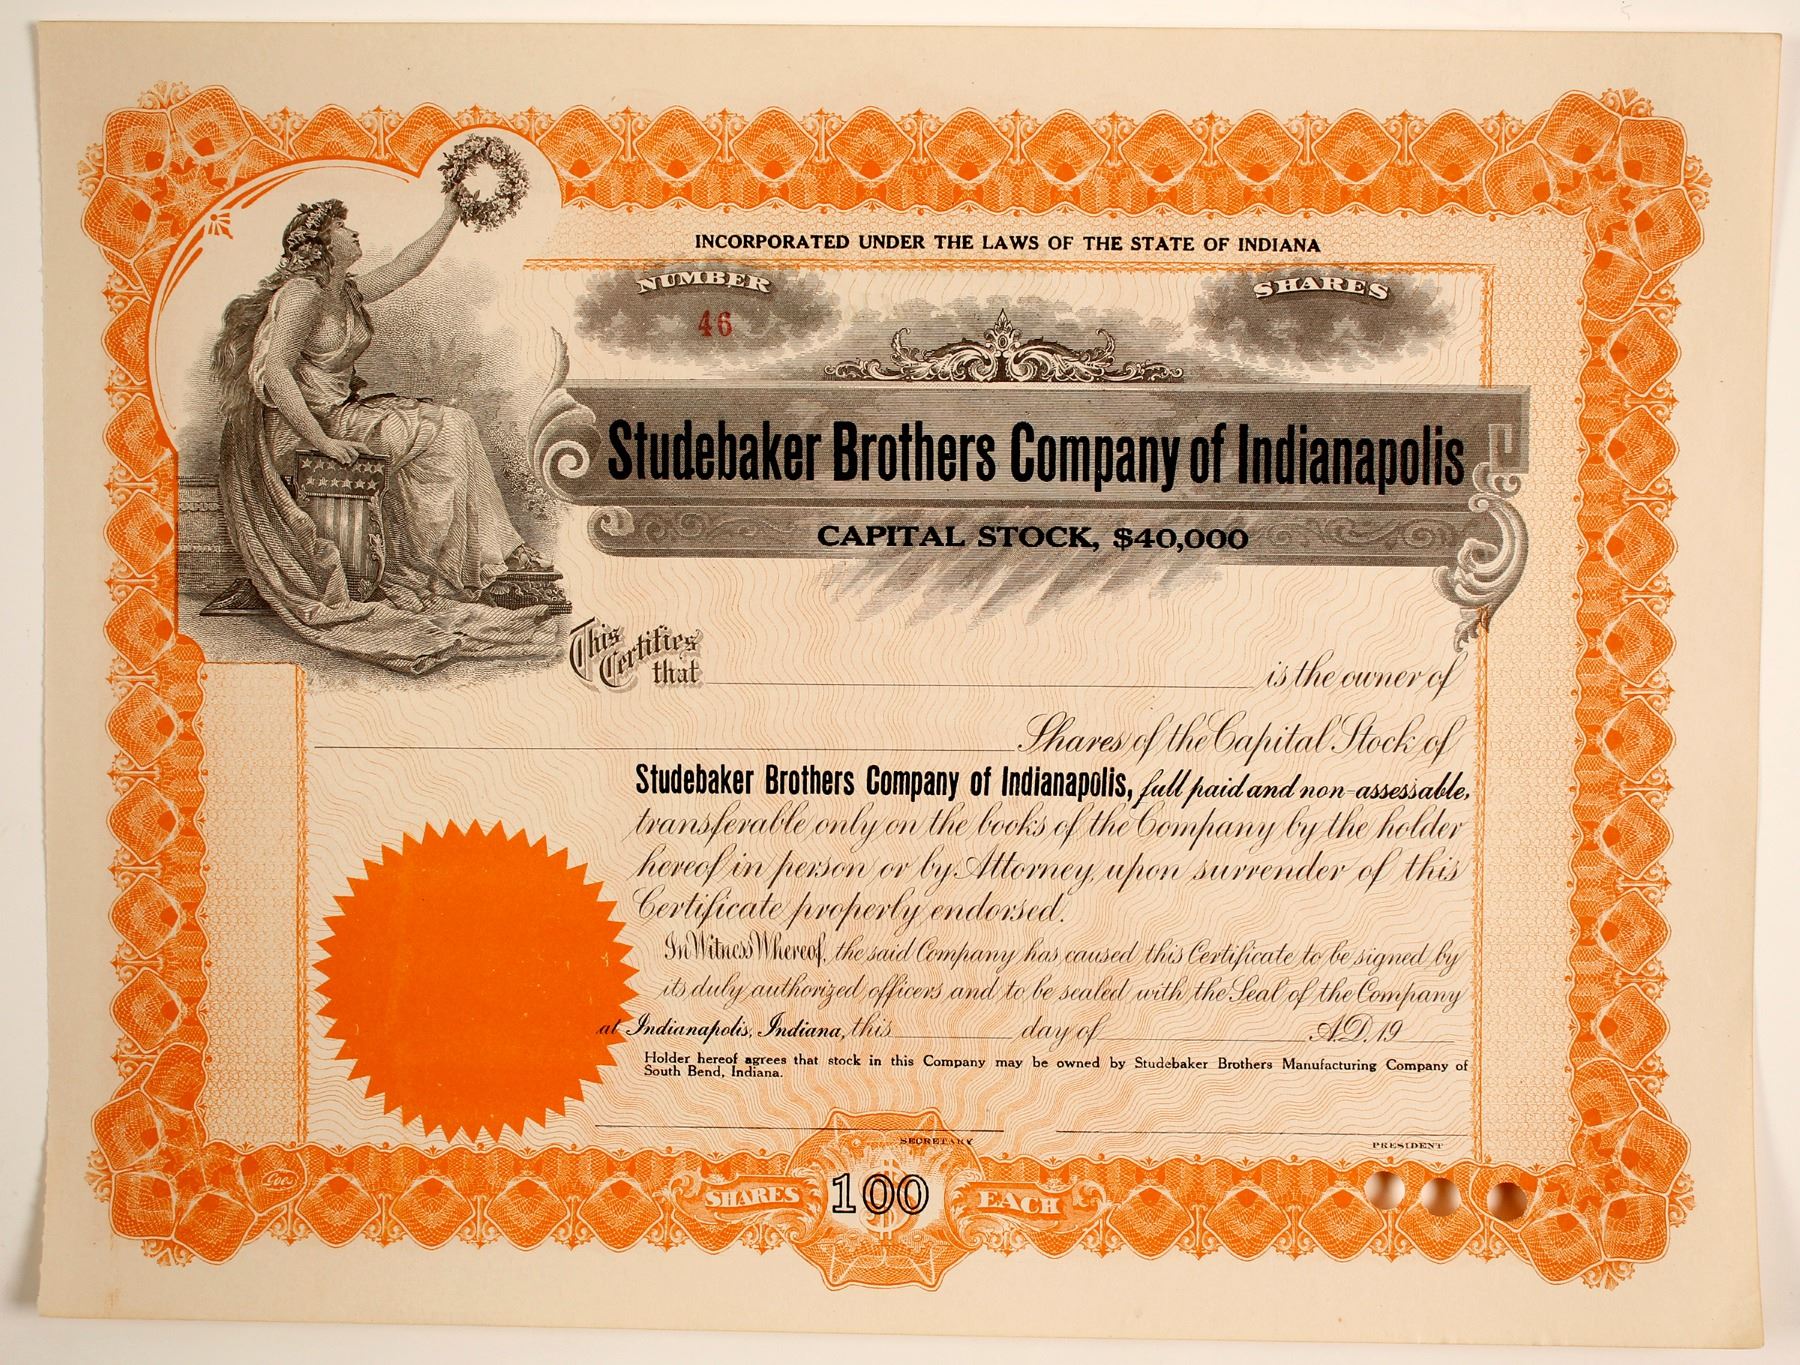 INCORPORATED UNDER THE LAWS OF THE STATE OF INDIANA
NUMBER
SHARES
46
Studebaker Brothers Company of Indianapolis
CAPITAL STOCK, $40,000
This Certifies that
is the owner of
Shares of the Capital Stock of
Studebaker Brothers Company of Indianapolis, full paid and non-assessable,
transferable only on the books of the Company by the holder
hereof in person or by Attorney, upon surrender of this
Certificate properly endorsed.
In Witness Whereof, the said Company has caused this Certificate to be signed by
its duly authorized officers and to be sealed with the Seal of the Company
at Indianapolis, Indiana, this day of A.D. 19
Holder hereof agrees that stock in this Company may be owned by Studebaker Brothers Manufacturing Company of
South Bend, Indiana.
SECRETARY
PRESIDENT
Goes
SHARES $100 EACH